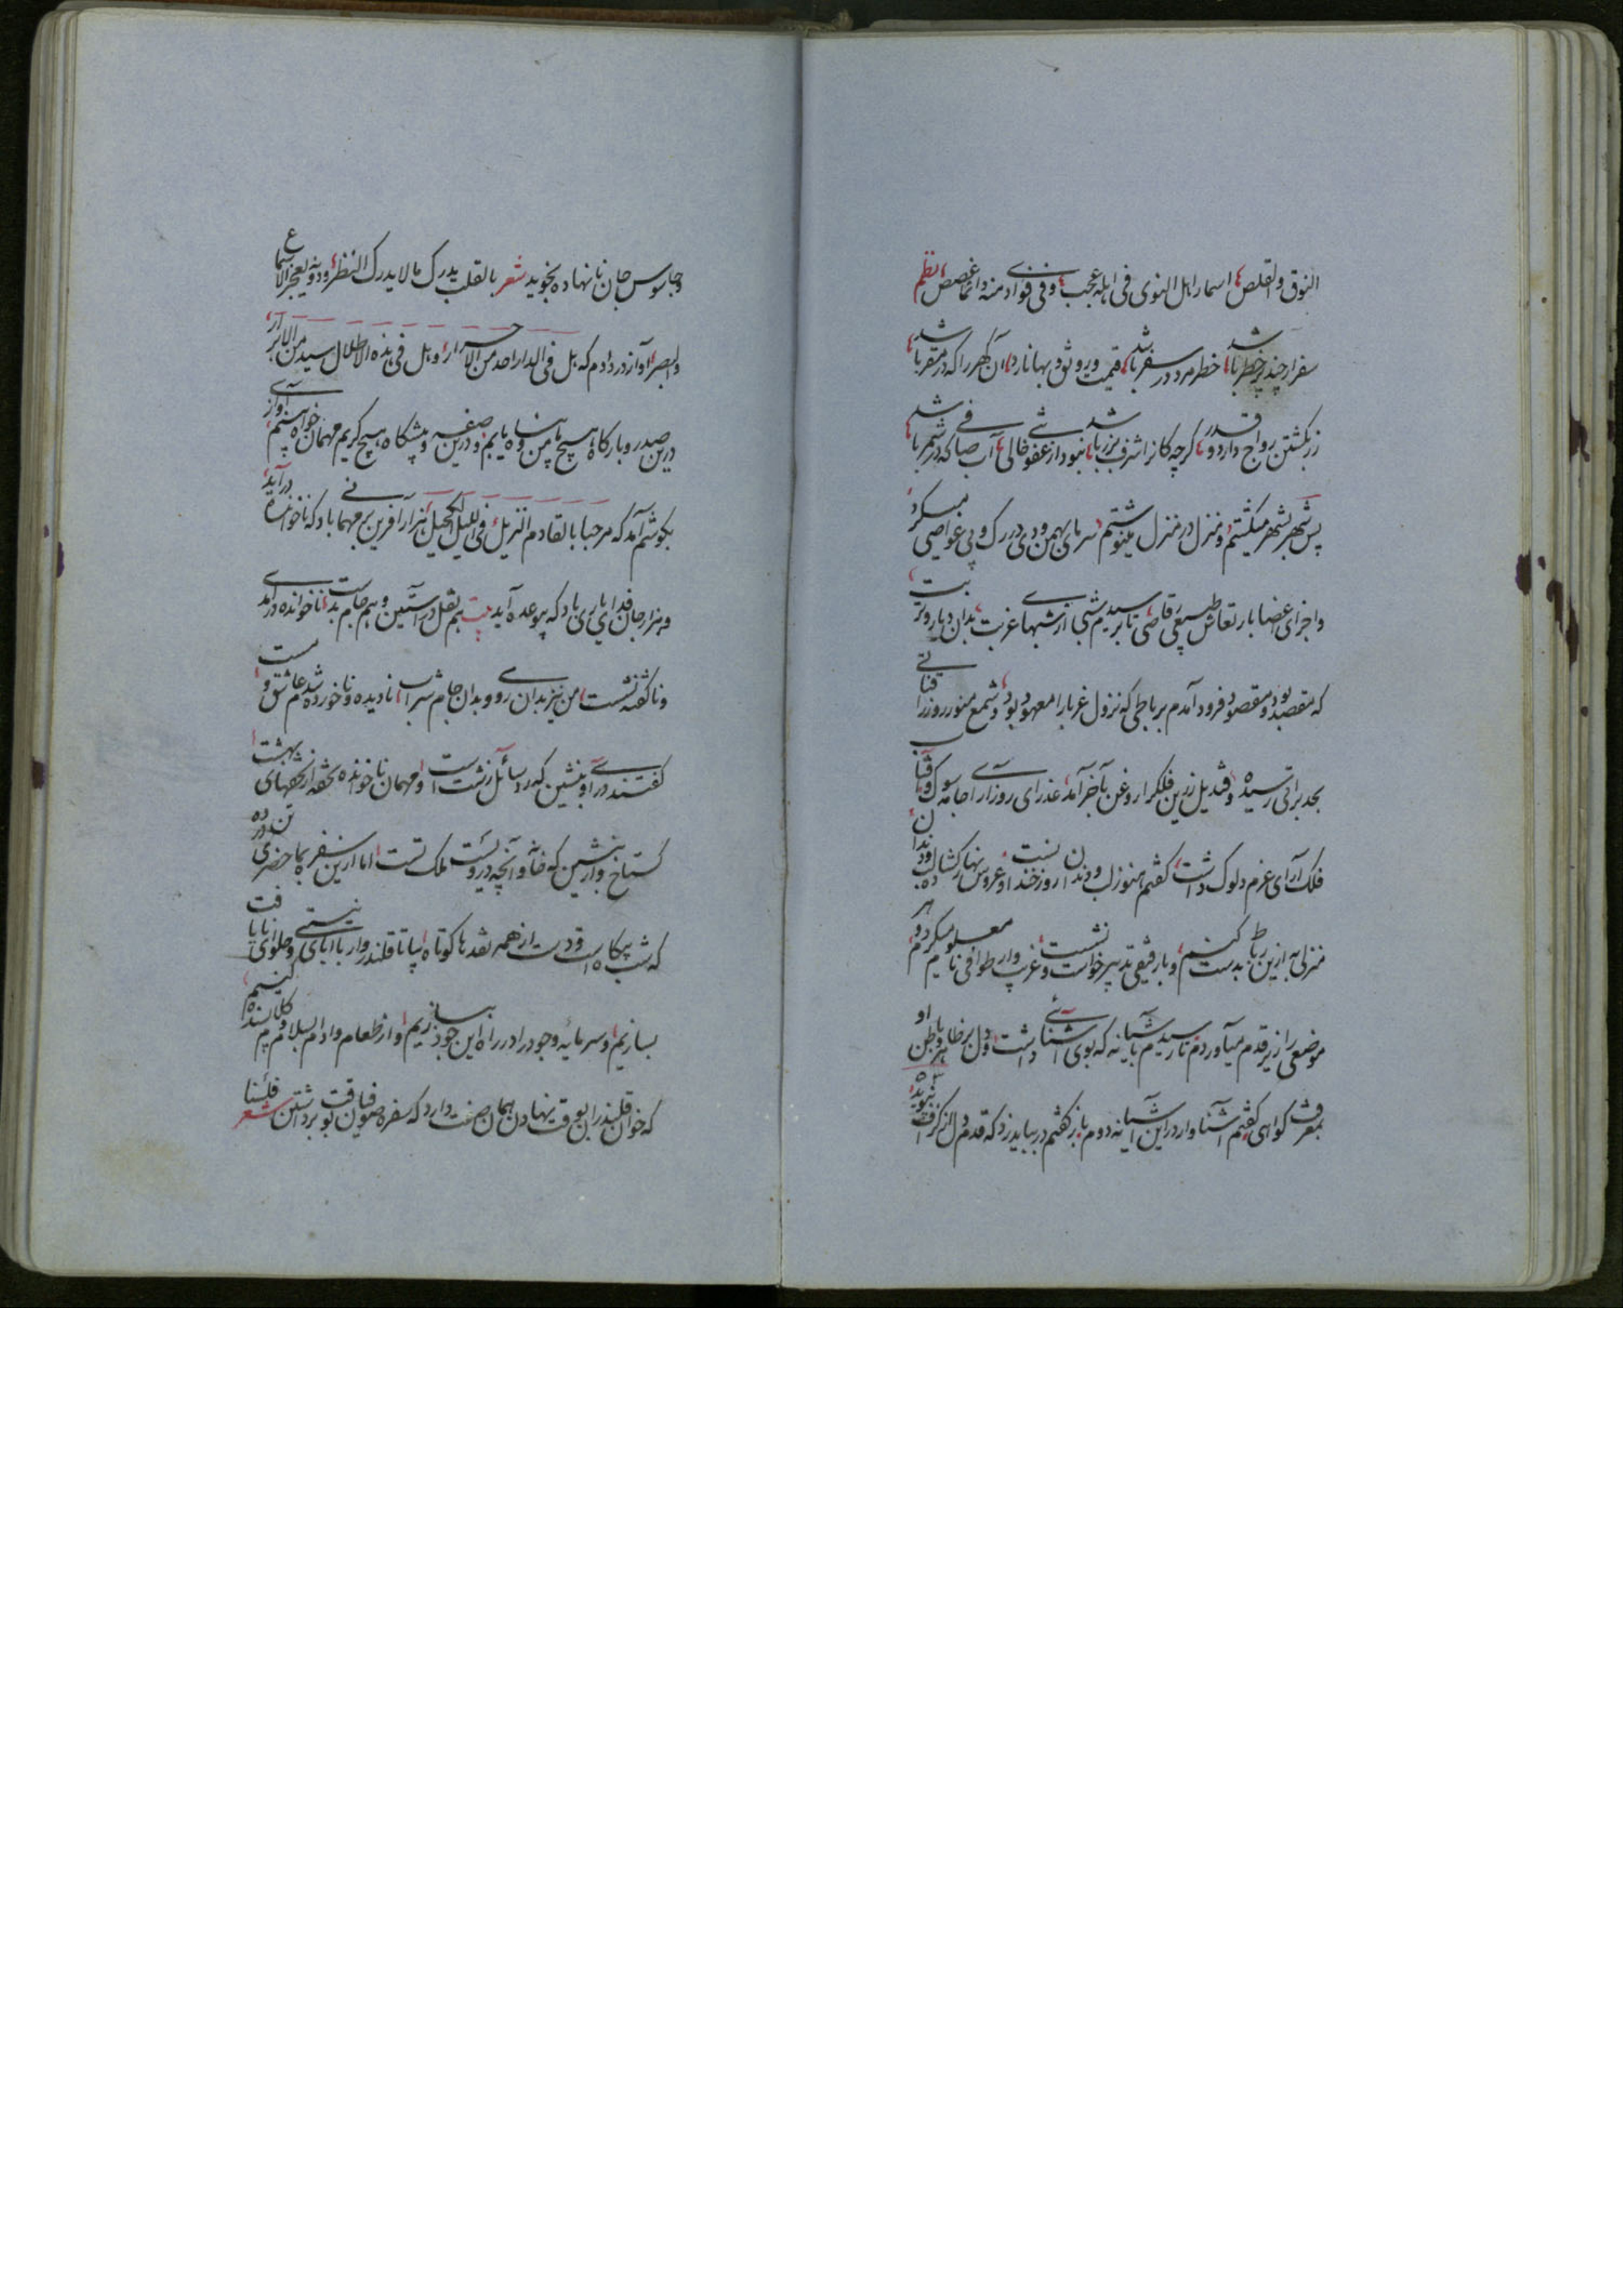 النوق والقلص اسمار اهل النوی فی اهله عجب وفی فوادی منه وانما غصص نظم
سفر ار چند پر خطر باشد خطر مرد در سفر باشد قیمت و روثق و بها نارد آن گهر را که در مقر باشد
زر بگشتن رواج دارد و قدر گرچه کانرا شرف بزر باشد نبود از عفو خالی آب صافی که در شمر باشد
پس شهر بشهر میگشتم و منزل در منزل مینوشتم سرمای بهمن و دی در رک و پی غواصی میکرد
و اجزای اعضا بارتعاش طبیعی رقاصی تا برسیدم شبی از شبهای غربت بدان دیار و تربت
که مقصد بود و مقصود فرود آمدم برباطی که نزول غربا را معهود بود و شمع منور روز را
بحد براتی رسیده و قندیل زرین فلک را روغن بآخر آمد عذرای روز آرای جامه سوک و آفتاب
فلک آرای عزم دلوک داشت گفتم هنوز لب و دندان روز خندانست و عروس نهار گشاده
منزلی به ازین رباط بدست کنیم و با رفیقی تدبیر خواست و نشست غریب وار طوافی نامعلوم میکردم
موضعی را زیر قدم میآوردم تا رسیدم بآشیانه که بوی آشنائی داشت و دل بر ظاهر و باطن او
بمعرفت گواهی گفتم آشنا وار در این آشیانه دوم باز گفتم در بباید زد که قدم دل از گزاف نپوید
و جاسوس جان نانهاده نجوید شعر بالقلب یدرک ما لا یدرک النظر ودونه یعجز الاسماع
والبصر آواز در دادم که هل فی الدار احد من الاحرار و هل فی هذه الاطلال سید من الابرار
درین صدر و بارگاه هیچ پناه یابم و درین صفه و پیشگاه هیچ کریم مهمان خواه بینم آوازی
بگوشم آمد که مرحبا بالقادم النزیل فی اللیل الکحیل هزار آفرین بر مهمانی باد که ناخوانده درآید
و هزار جان فدای یاری باد که بیوعده آید بیت هم نقل در آستین و هم جام بدست ناخوانده درآمدی
و ناگفته نشست من نیز بدان روی و بدان جام شراب نادیده و ناخورده شدم عاشق و مست
گفتند درآی و بنشین که رد سائل زشت است و مهمان ناخوانده تحفه از تحفهای بهشت
گستاخ وار بنشین که خانه و آنچه دروست ملک تست اما ازین سفره بما حضری تن درده
که شب بیگاه است و دست از همه نقدها کوتاه بیا تا قلندروار با ابای نیستی و حلوای نایافت
بسازیم و سرمایه وجود را در راه این جود بیندازیم و از طعام وادام بسلام و کلام بسنده کنیم
که خوان قلندران بوقت نهادن همان صفت دارد که سفره صوفیان بوقت برداشتن شعر